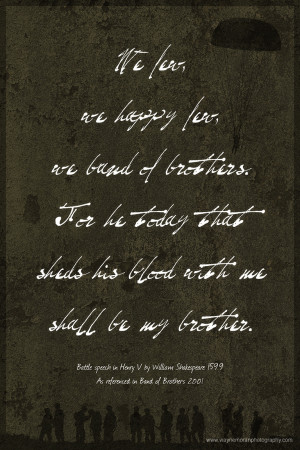 We few,
we happy few,
we band of brothers.
For he today that
sheds his blood with me
shall be my brother.
Battle speech in Henry V by William Shakespeare 1599
As referenced in Band of Brothers 2001
www.waynemolinphotography.com